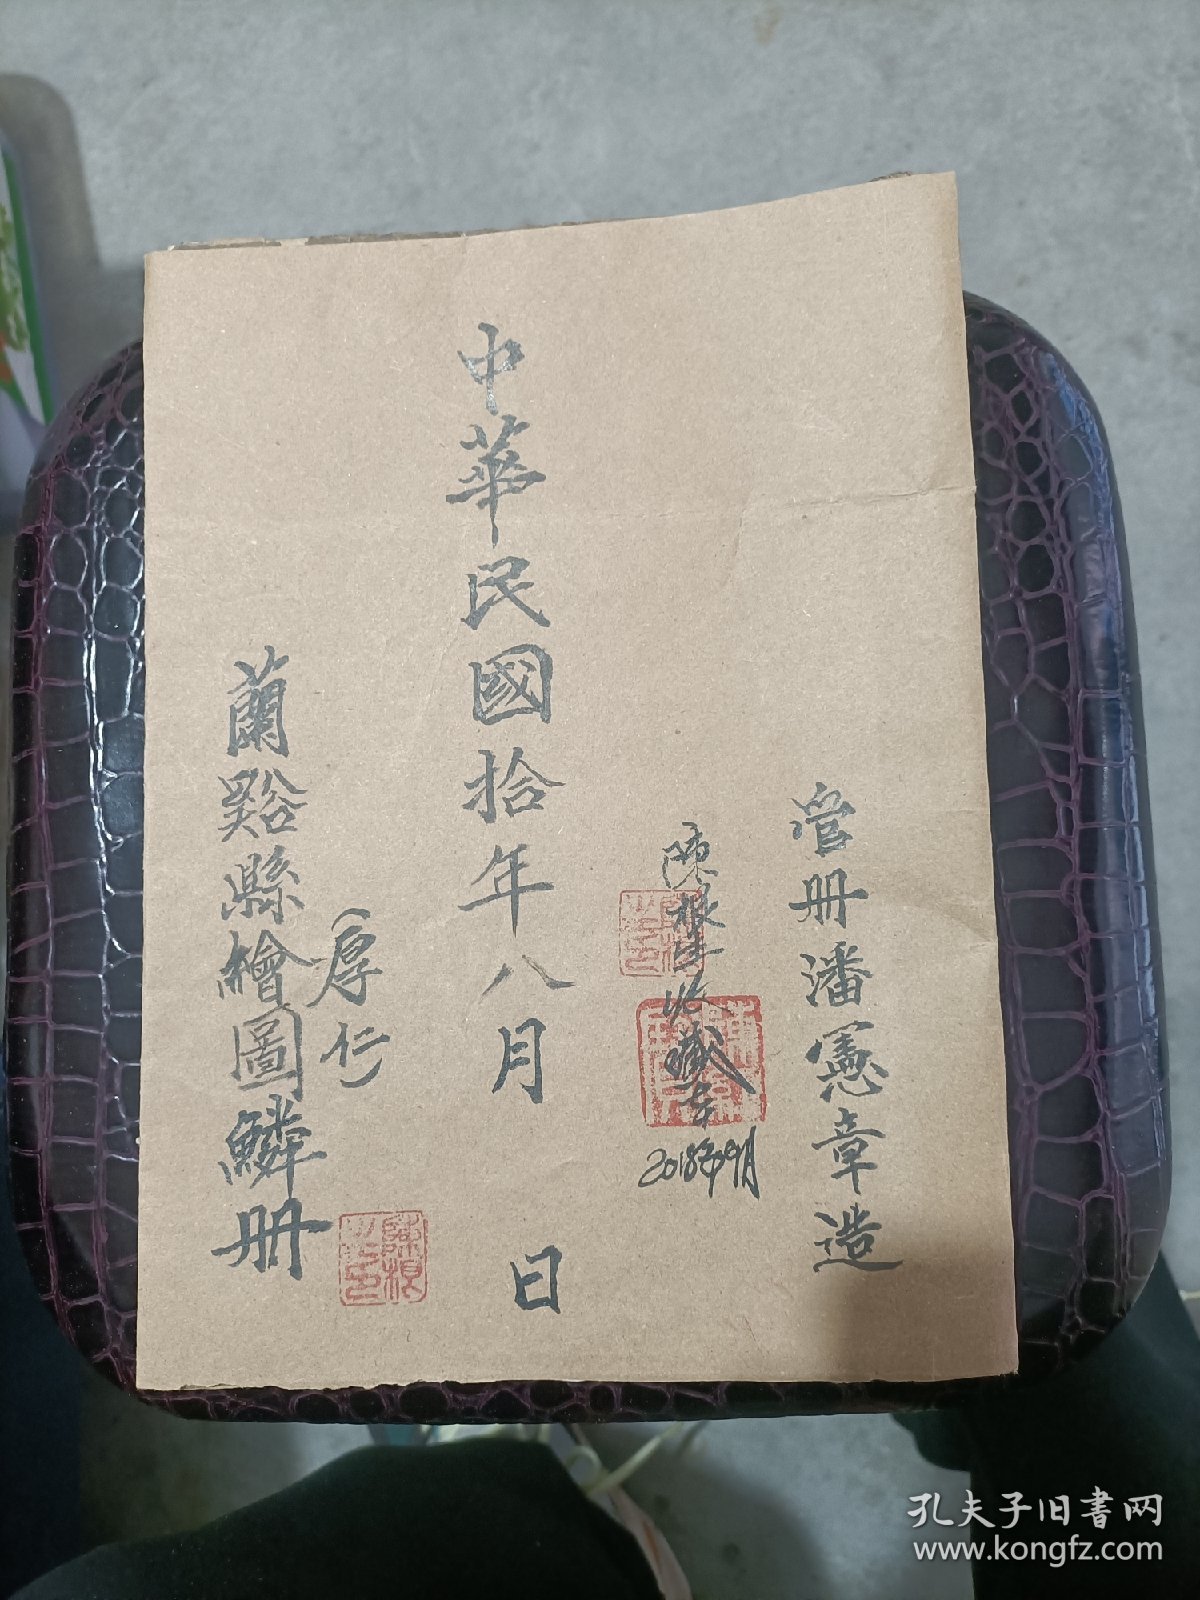 管册潘憲章造
陳根生收藏本
2018年9月
中華民國拾年八月 日
厚仁
蘭谿縣繪圖鱗册
孔夫子旧書网
www.kongfz.com